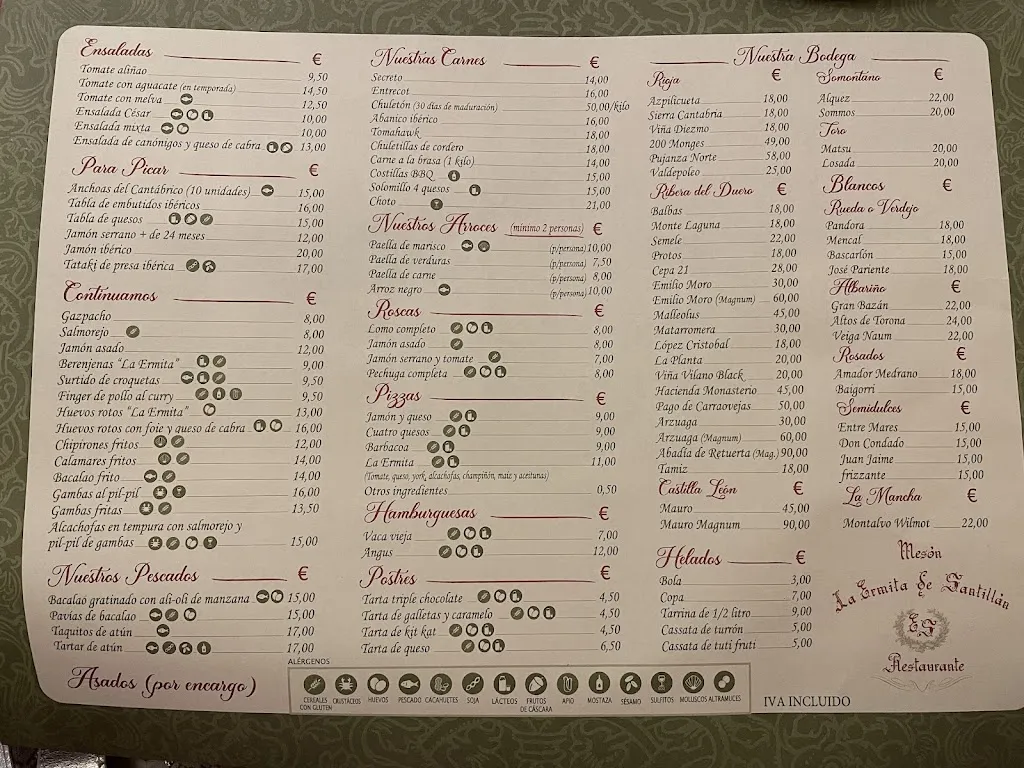 Ensaladas €
Tomate aliñao 9,50
Tomate con aguacate (en temporada) 14,50
Tomate con melva 12,50
Ensalada César 10,00
Ensalada mixta 10,00
Ensalada de canónigos y queso de cabra 13,00
Para Picar €
Anchoas del Cantábrico (10 unidades) 15,00
Tabla de embutidos ibéricos 16,00
Tabla de quesos 15,00
Jamón serrano + de 24 meses 12,00
Jamón ibérico 20,00
Tataki de presa ibérica 17,00
Continuamos €
Gazpacho 8,00
Salmorejo 8,00
Jamón asado 12,00
Berenjenas "La Ermita" 9,00
Surtido de croquetas 9,50
Finger de pollo al curry 9,50
Huevos rotos "La Ermita" 13,00
Huevos rotos con foie y queso de cabra 16,00
Chipirones fritos 12,00
Calamares fritos 14,00
Bacalao frito 14,00
Gambas al pil-pil 16,00
Gambas fritas 13,50
Alcachofas en tempura con salmorejo y
pil-pil de gambas 15,00
Nuestros Pescados €
Bacalao gratinado con ali-oli de manzana 15,00
Pavías de bacalao 15,00
Taquitos de atún 17,00
Tartar de atún 17,00
Asados (por encargo)
Nuestras Carnes €
Secreto 14,00
Entrecot 16,00
Chuletón (30 días de maduración) 50,00/kilo
Abanico ibérico 16,00
Tomahawk 18,00
Chuletillas de cordero 18,00
Carne a la brasa (1 kilo) 14,00
Costillas BBQ 15,00
Solomillo 4 quesos 15,00
Choto 21,00
Nuestros Arroces (mínimo 2 personas) €
Paella de marisco (p/persona) 10,00
Paella de verduras (p/persona) 7,50
Paella de carne (p/persona) 8,00
Arroz negro (p/persona) 10,00
Roscas €
Lomo completo 8,00
Jamón asado 8,00
Jamón serrano y tomate 7,00
Pechuga completa 8,00
Pizzas €
Jamón y queso 9,00
Cuatro quesos 9,00
Barbacoa 9,00
La Ermita 11,00
(Tomate, queso, york, alcachofas, champiñón, maíz y aceitunas)
Otros ingredientes 0,50
Hamburguesas €
Vaca vieja 7,00
Angus 12,00
Postres €
Tarta triple chocolate 4,50
Tarta de galletas y caramelo 4,50
Tarta de kit kat 4,50
Tarta de queso 6,50
Nuestra Bodega
Rioja €
Azpilicueta 18,00
Sierra Cantabria 18,00
Viña Diezmo 18,00
200 Monges 49,00
Pujanza Norte 58,00
Valdepoleo 25,00
Ribera del Duero €
Balbas 18,00
Monte Laguna 18,00
Semele 22,00
Protos 18,00
Cepa 21 28,00
Emilio Moro 30,00
Emilio Moro (Magnum) 60,00
Malleolus 45,00
Matarromera 30,00
López Cristobal 18,00
La Planta 20,00
Viña Vilano Black 20,00
Hacienda Monasterio 45,00
Pago de Carraovejas 50,00
Arzuaga 30,00
Arzuaga (Magnum) 60,00
Abadía de Retuerta (Mag.) 90,00
Tamiz 18,00
Castilla León €
Mauro 45,00
Mauro Magnum 90,00
Helados €
Bola 3,00
Copa 7,00
Tarrina de 1/2 litro 9,00
Cassata de turrón 5,00
Cassata de tuti fruti 5,00
Somontano €
Alquez 22,00
Sommos 20,00
Toro
Matsu 20,00
Losada 20,00
Blancos €
Rueda o Verdejo
Pandora 18,00
Mencal 18,00
Bascarlón 15,00
José Pariente 18,00
Albariño €
Gran Bazán 22,00
Altos de Torona 24,00
Veiga Naum 22,00
Rosados €
Amador Medrano 18,00
Baigorri 15,00
Semidulces €
Entre Mares 15,00
Don Condado 15,00
Juan Jaime 15,00
frizzante 15,00
La Mancha €
Montalvo Wilmot 22,00
Mesón
La Ermita de Santillán
ES
Restaurante
ALÉRGENOS
CEREALES CON GLUTEN
CRUSTÁCEOS
HUEVOS
PESCADO
CACAHUETES
SOJA
LÁCTEOS
FRUTOS DE CÁSCARA
APIO
MOSTAZA
SÉSAMO
SULFITOS
MOLUSCOS
ALTRAMUCES
IVA INCLUIDO